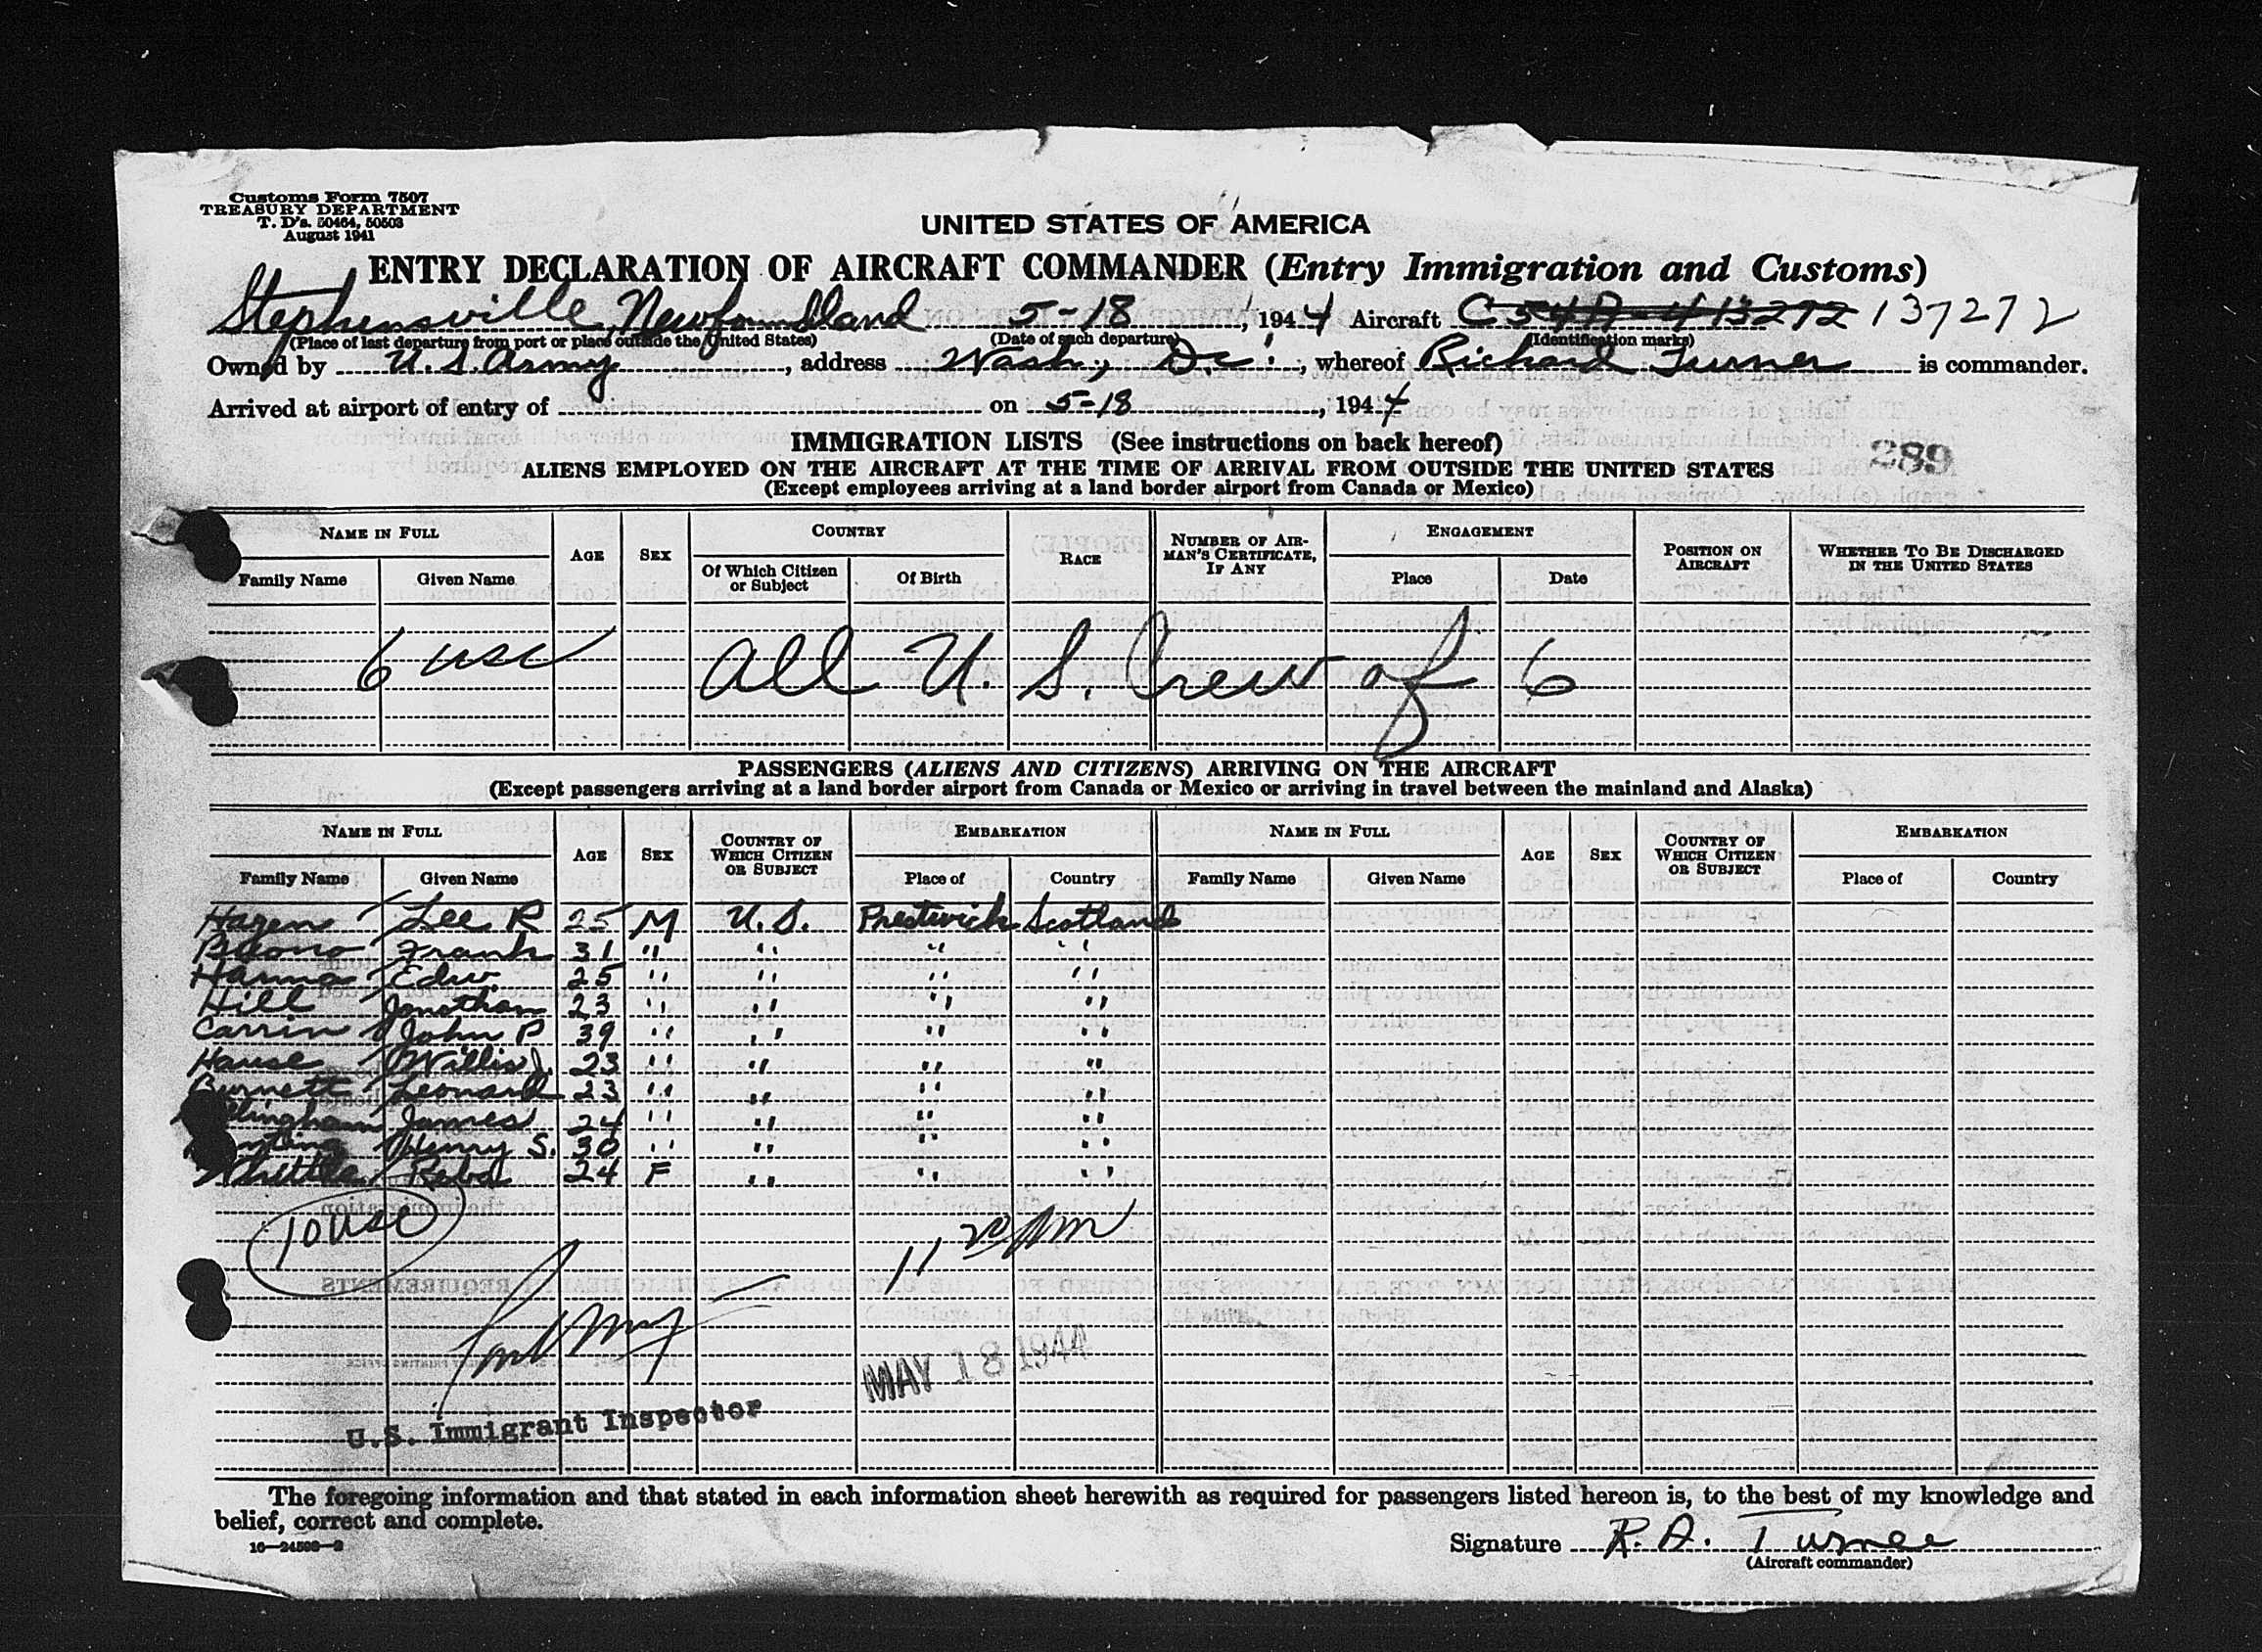 Customs Form 7507
TREASURY DEPARTMENT
T. D's. 50464, 50503
August 1941
UNITED STATES OF AMERICA
ENTRY DECLARATION OF AIRCRAFT COMMANDER (Entry Immigration and Customs)
Stephensville, Newfoundland 5-18, 1944 Aircraft C54A-413272 137272
(Place of last departure from port or place outside the United States) (Date of such departure) (Identification marks)
Owned by U.S. Army, address Wash, D.C., whereof Richard Turner is commander.
Arrived at airport of entry of on 5-18, 1944
IMMIGRATION LISTS (See instructions on back hereof)
289
ALIENS EMPLOYED ON THE AIRCRAFT AT THE TIME OF ARRIVAL FROM OUTSIDE THE UNITED STATES
(Except employees arriving at a land border airport from Canada or Mexico)
NAME IN FULL AGE SEX COUNTRY RACE NUMBER OF AIRMAN'S CERTIFICATE, IF ANY ENGAGEMENT POSITION ON AIRCRAFT WHETHER TO BE DISCHARGED IN THE UNITED STATES
Family Name Given Name Of Which Citizen or Subject Of Birth Place Date
6 usc All U.S. Crew of 6
PASSENGERS (ALIENS AND CITIZENS) ARRIVING ON THE AIRCRAFT
(Except passengers arriving at a land border airport from Canada or Mexico or arriving in travel between the mainland and Alaska)
NAME IN FULL AGE SEX COUNTRY OF WHICH CITIZEN OR SUBJECT EMBARKATION NAME IN FULL AGE SEX COUNTRY OF WHICH CITIZEN OR SUBJECT EMBARKATION
Family Name Given Name Place of Country Family Name Given Name Place of Country
Hagen Lee R 25 M U.S. Prestwick Scotland
Buono Frank 31 " " " "
Hanna Edw. 25 " " " "
Hill Jonathan 23 " " " "
Carrin John P 39 " " " "
Hause Willis J. 23 " " " "
Burnett Leonard 23 " " " "
James 24 " " " "
Henry S. 30 " " " "
Whittle Reba 24 F " " "
10 usc
11 20 pm
MAY 18 1944
U.S. Immigrant Inspector
The foregoing information and that stated in each information sheet herewith as required for passengers listed hereon is, to the best of my knowledge and
belief, correct and complete.
16—24598-2
Signature R. A. Turner
(Aircraft commander)